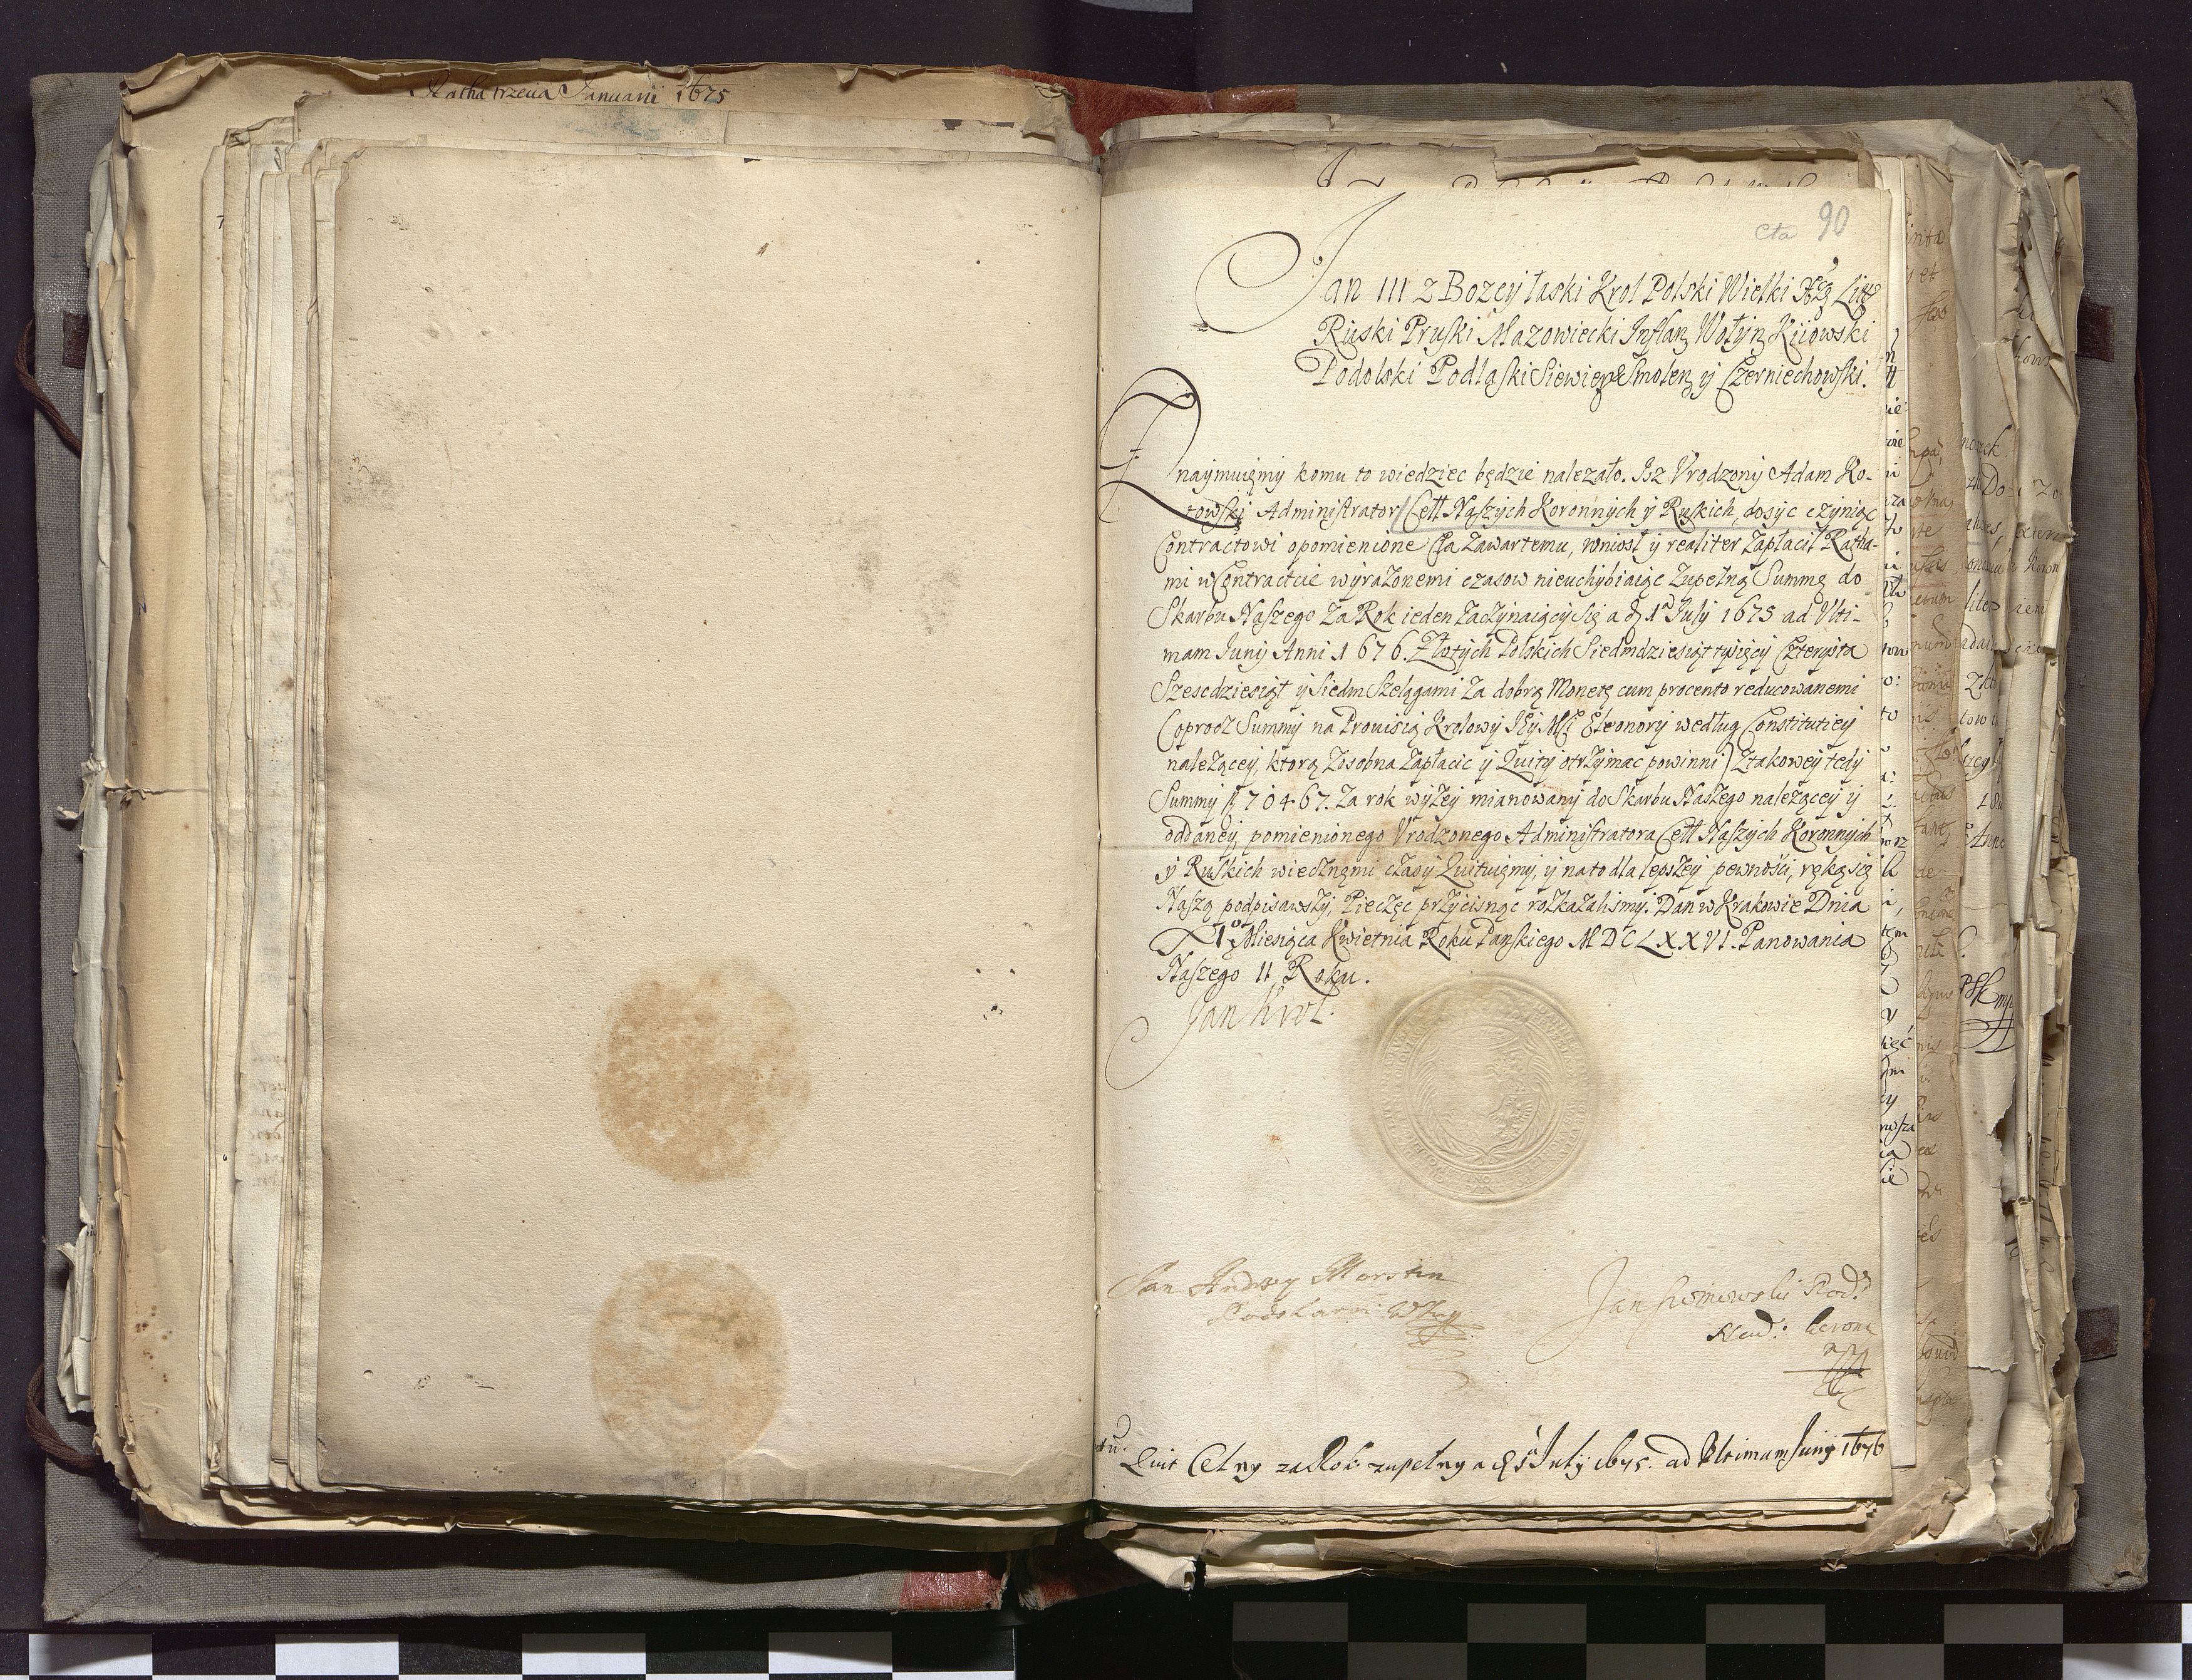 Ratha trzecia Januarii 1675
Cła 90
Jan III z Bozey łaski Krol Polski Wielki Xżę Litt
Ruski Pruski Mazowiecki Inflanz Wołynz Kiiowski
Podolski Podlaski Siewier Smolenz y Czerniechowski.
Znaymuięmy komu to wiedziec będzie nalezało. Isz Vrodzony Adam Ko-
towski Administrator Cell Naszych Koronnych y Ruskich, dosyc czyniąc
Contractowi o pomienione Cła zawartemu, wniosł y realiter zapłacił Ratha-
mi w Contractcie wyrażonemi czasow nieuchybiaiąc Zupełną Summę do
Skarbu Naszego Za Rok ieden Zaczynaiący się a d. 1a July 1675 ad Vlti-
mam Junij Anni 1676. Złotych Polskich Siedmdziesiąt tysięcy Czterysta
Szescdziesiąt y Siedm Szelągami Za dobrą Monetę cum procento reducowanemi
(oprocz Summy na Prouisią Krolowy Jey Mci Eleonory według Constitutiey
należącey, ktorą Zosobna Zapłacic y Quity otrzymac powinni) Ztakowey tedy
Summy fl 70467. Za rok wyżey mianowany do Skarbu Naszego należącey y
oddaney, pomienionego Vrodzonego Administratora Cell Naszych Koronnych
y Ruskich wiecznęmi czasy Quituięmy, y na to dla lepszey pewności, ręką się
Naszą podpisawszy, Pieczęc przycisnąc roskazalismy. Dan w Krakowie Dnia
1 Miesiąca Kwietnia Roku Panskiego MDCLXXVI. Panowania
Naszego II Roku.
Jan Krol
Jan Andrzey Morstin
Podskarbi WKy
Jan
Nad: koron
Quit Celny za Rok zupełny a d 1 July 1675. ad Vltimam Junij 1676